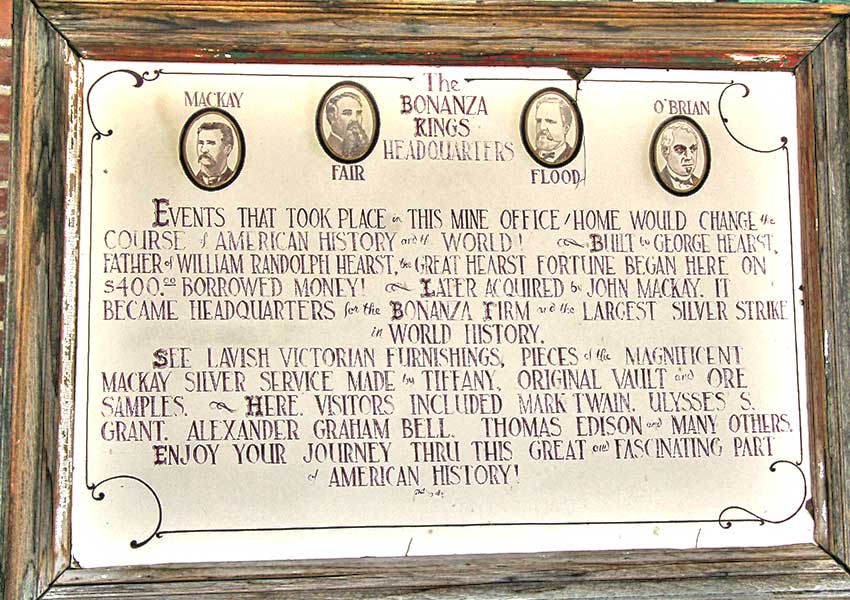 The
MACKAY BONANZA O'BRIAN
KINGS
HEADQUARTERS
FAIR FLOOD
EVENTS THAT TOOK PLACE in THIS MINE OFFICE/HOME WOULD CHANGE the
COURSE of AMERICAN HISTORY and the WORLD! BUILT by GEORGE HEARST,
FATHER of WILLIAM RANDOLPH HEARST, the GREAT HEARST FORTUNE BEGAN HERE ON
$400.00 BORROWED MONEY! LATER ACQUIRED by JOHN MACKAY. IT
BECAME HEADQUARTERS for the BONANZA FIRM and the LARGEST SILVER STRIKE
in WORLD HISTORY.
SEE LAVISH VICTORIAN FURNISHINGS, PIECES of the MAGNIFICENT
MACKAY SILVER SERVICE MADE by TIFFANY, ORIGINAL VAULT and ORE
SAMPLES. HERE, VISITORS INCLUDED MARK TWAIN, ULYSSES S.
GRANT, ALEXANDER GRAHAM BELL, THOMAS EDISON and MANY OTHERS.
ENJOY YOUR JOURNEY THRU THIS GREAT and FASCINATING PART
of AMERICAN HISTORY!